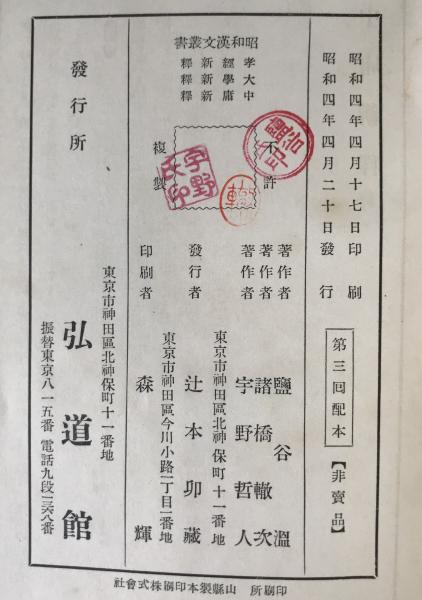 昭和四年四月十七日印刷
昭和四年四月二十日發行
第三回配本
【非賣品】
昭和漢文叢書
孝經新釋
大學新釋
中庸新釋
不許
複製
宇野氏印
著作者 鹽谷溫
著作者 諸橋轍次
著作者 宇野哲人
東京市神田區北神保町十一番地
發行者 辻本卯藏
東京市神田區今川小路一丁目一番地
印刷者 森輝
發行所
東京市神田區北神保町十一番地
弘道館
振替東京八一五番 電話九段
印刷所 山縣製本印刷株式會社